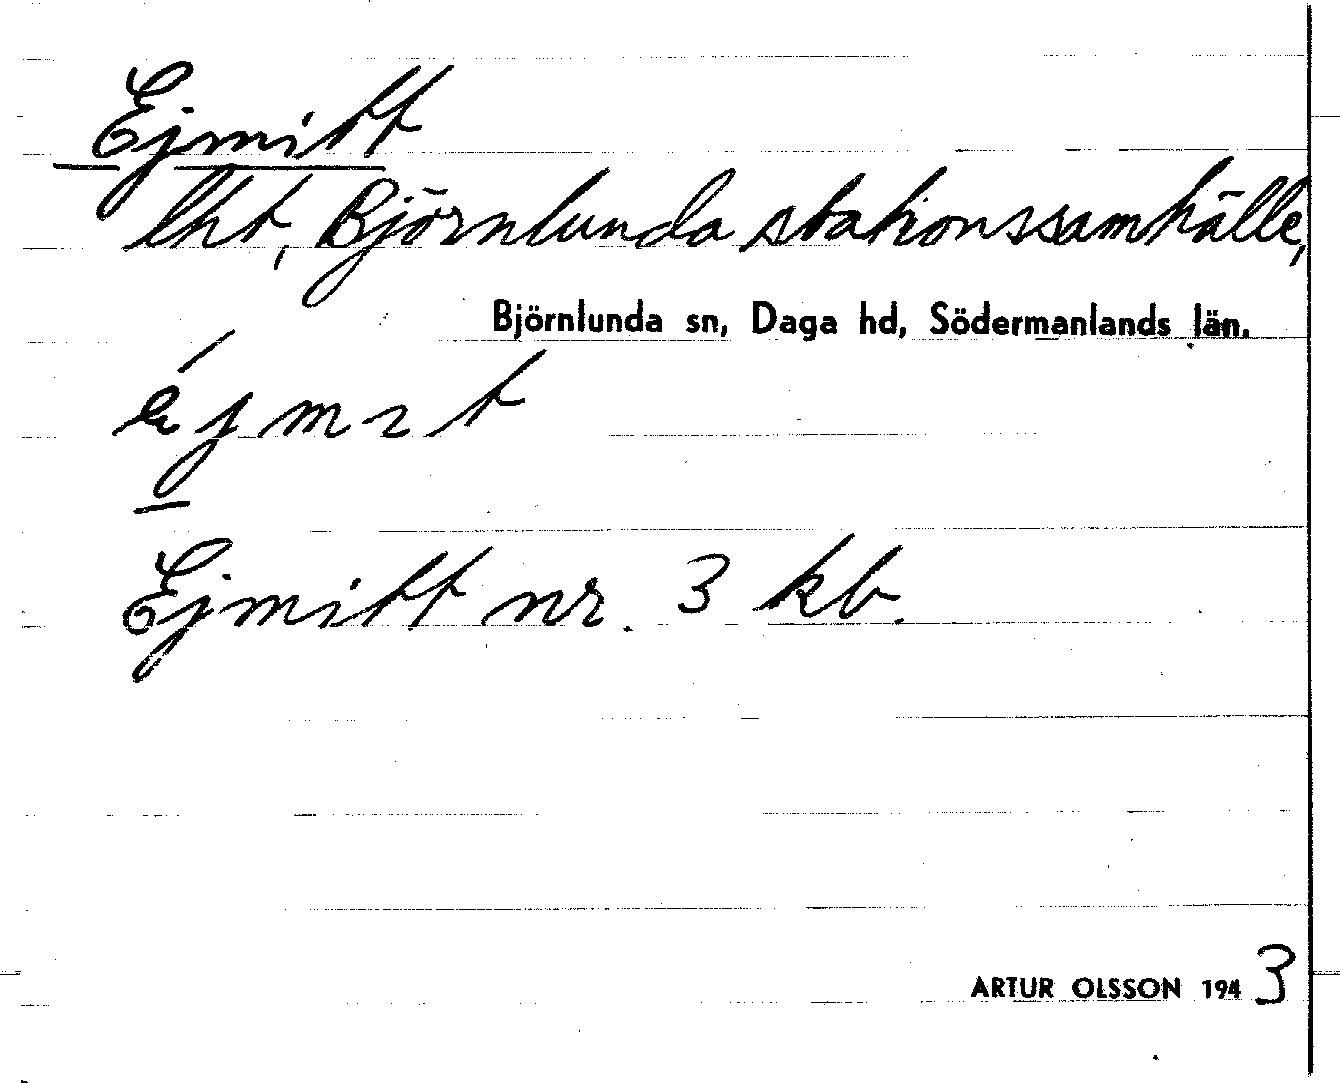 Ejmitt
lht, Björnlunda stationssamhälle,
Björnlunda sn, Daga hd, Södermanlands län.
éjmıt
Ejmitt nr. 3 kb.
ARTUR OLSSON 1943